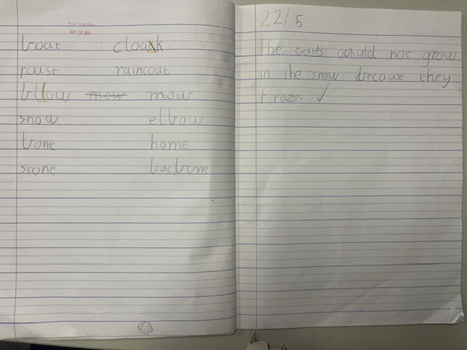 boat cloak
roast raincoat
bllow mow mow
snow elbow
bone home
stone backbone
22/5
The oats could not grow
in the snow because they
froze. ✓